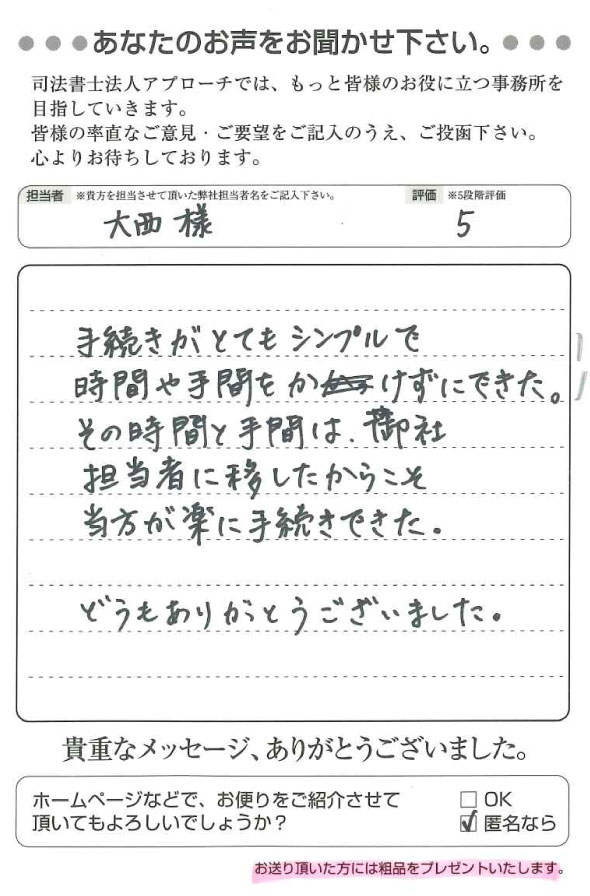 ●●●あなたのお声をお聞かせ下さい。●●●
司法書士法人アプローチでは、もっと皆様のお役に立つ事務所を
目指していきます。
皆様の率直なご意見・ご要望をご記入のうえ、ご投函下さい。
心よりお待ちしております。
担当者 ※貴方を担当させて頂いた弊社担当者名をご記入下さい。 評価 ※5段階評価
大西様 5
手続きがとてもシンプルで
時間や手間をかけずにできた。
その時間と手間は、御社
担当者に移したからこそ
当方が楽に手続きできた。
どうもありがとうございました。
貴重なメッセージ、ありがとうございました。
ホームページなどで、お便りをご紹介させて □ OK
頂いてもよろしいでしょうか? ☑ 匿名なら
お送り頂いた方には粗品をプレゼントいたします。